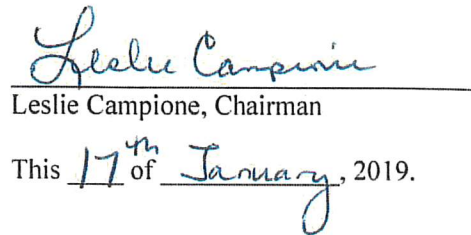 Leslie Campione
Leslie Campione, Chairman
This 17th of January, 2019.